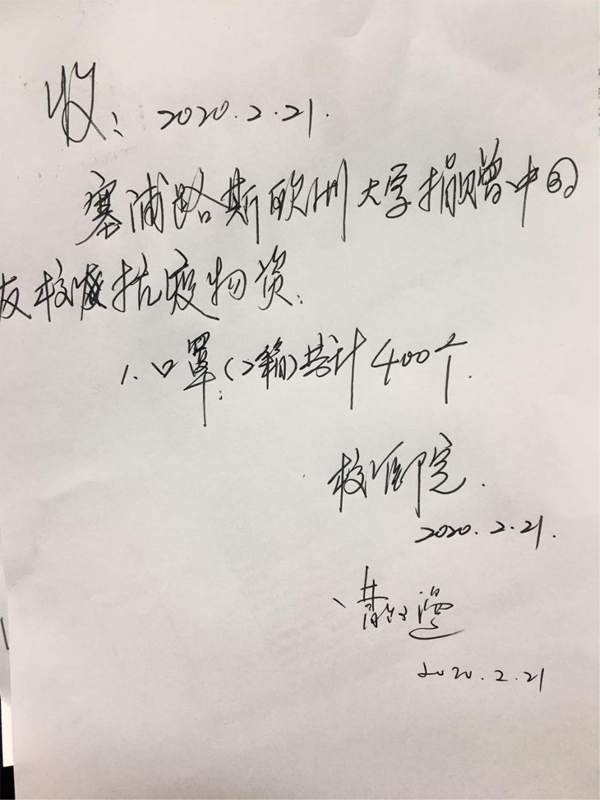 收: 2020.2.21.
塞浦路斯欧洲大学捐赠中国
友校抗疫物资:
1.口罩:(2箱)共计400个.
校医院.
2020.2.21.
2020.2.21